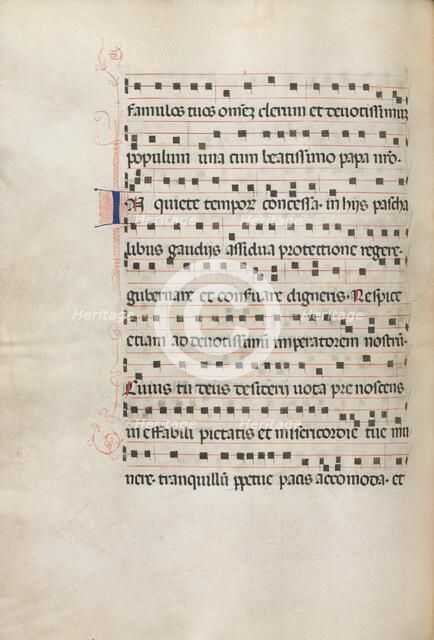 famulos tuos omēz clerum et deuotissimuz
populum una cum beatissimo papa nr̄o.
N quiete tempor concessa. in hijs pascha
libus gaudijs assidua protectione regere.
gubernare et conseruare digneris. Respice
etiam ad deuotissimum imperatorem nostrū.
Cuius tu deus desiderij uota prenoscens
ineffabili pietatis et misericordie tue mu
nere. tranquillū ppetue pacis accomoda. et
Heritage Heritage
Heritage Heritage
Heritage Heritage